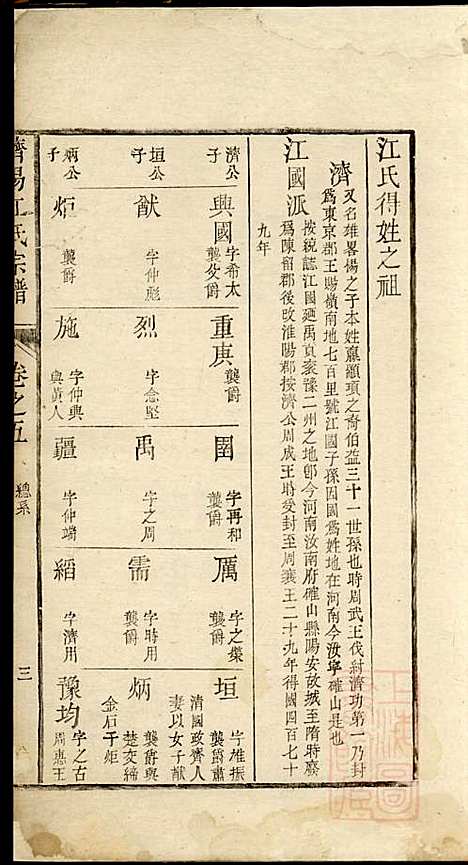 江氏得姓之祖
濟
又名雄畧楊之子本姓嬴顓頊之裔伯益三十一世孫也時周武王伐紂濟功第一乃封
爲東京郡王賜嶺南地七百里號江國子孫因國爲姓地在河南今汝寧確山是也
江國派
按統誌江國廼禹貢豫二州之地卽今河南汝南府確山縣陽安故城至隋時廢
爲陳留郡後改淮陽郡按濟公周成王時受封至周襄王二十九年得國四百七十
九年
濟公子
興國
字希太
襲父爵
重庚
襲爵
圉
字再和
襲爵
厲
字之榮
襲爵
垣
字維振
襲爵肅
清國政齊人
妻以女子猷
垣公子
猷
字仲彪
烈
字念堅
禹
字之周
需
字時用
襲爵
炳
襲爵與
楚交締
金石子炬
炳公子
炬
襲爵
施
字仲興
與黃人
疆
字仲端
縚
字濟用
豫均
字之古
周惠王
濟陽江氏宗譜
卷之五
總系
三